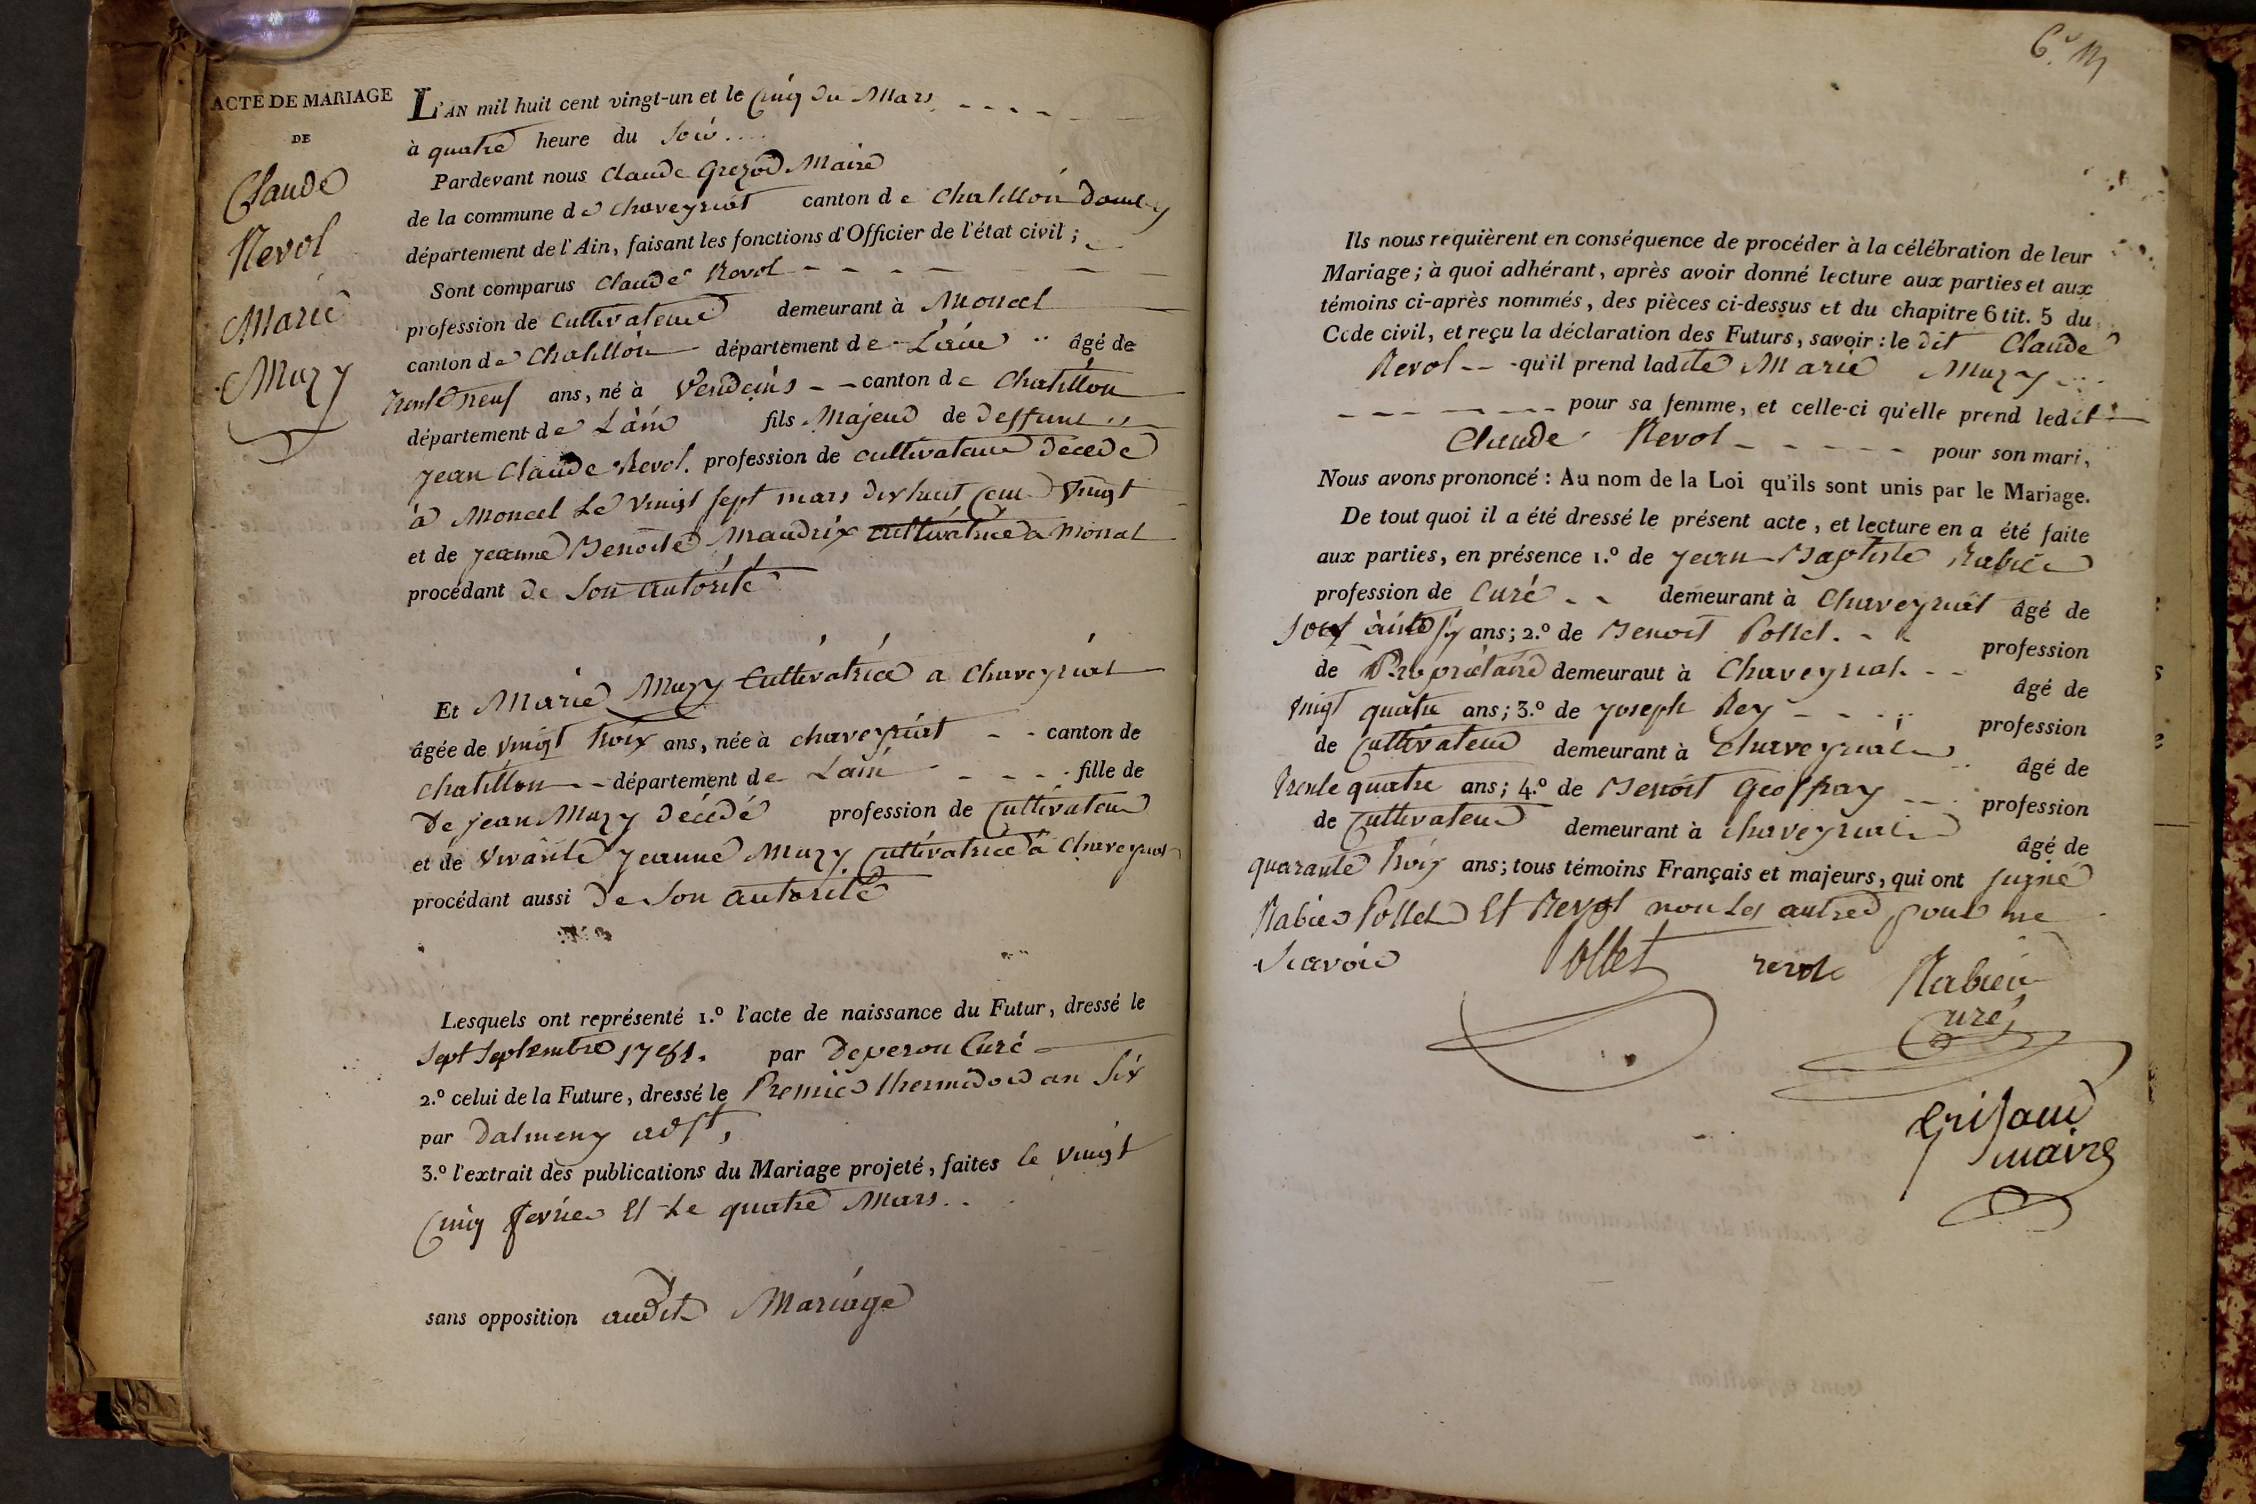 ACTE DE MARIAGE
DE
Claude
Revol
Marie
Muzy
L'AN mil huit cent vingt-un et le Cinq du Mars
à quatre heure du Soir
Pardevant nous Claude Maire
de la commune de Chaveyriat canton de Chatillon
département de l'Ain, faisant les fonctions d'Officier de l'état civil;
Sont comparus Claude Revol
profession de Cultivateur demeurant à Moncel
canton de Chatillon département de L'ain âgé de
trente neuf ans, né à Vendeins canton de Chatillon
département de L'ain fils Majeur de deffunt
Jean Claude Revol. profession de cultivateur décédé
à Moncel Le vingt sept mars dix huit Cent vingt
et de jeanne Benoite Maudrix cultivatrice a Moncel
procédant de Son autorité
Et Marie Muzy Cultivatrice a Chaveyriat
âgée de vingt troix ans, née à chaveyriat canton de
chatillon département de Lain fille de
De jean Muzy décédé profession de Cultivateur
et de vivante jeanne Muzy Cultivatrice à Chaveyriat
procédant aussi de Son autorité
Lesquels ont représenté 1.º l'acte de naissance du Futur, dressé le
Sept Septembre 1781. par Curé
2.º celui de la Future, dressé le Premier thermidor an Six
par Dalmeny adjt,
3.º l'extrait des publications du Mariage projeté, faites le vingt
Cinq fevrier Et Le quatre Mars
sans opposition audit Mariage
Ils nous requièrent en conséquence de procéder à la célébration de leur
Mariage; à quoi adhérant, après avoir donné lecture aux parties et aux
témoins ci-après nommés, des pièces ci-dessus et du chapitre 6 tit. 5 du
Code civil, et reçu la déclaration des Futurs, savoir: le dit Claude
Revol qu'il prend ladite Marie Muzy
pour sa femme, et celle-ci qu'elle prend ledit
Claude Revol pour son mari,
Nous avons prononcé: Au nom de la Loi qu'ils sont unis par le Mariage.
De tout quoi il a été dressé le présent acte, et lecture en a été faite
aux parties, en présence 1.º de jean Baptiste Rabier
profession de Curé demeurant à Chaveyriat âgé de
ans; 2.º de Benoit Pollet. profession
de Propriétaire demeurant à Chaveyriat âgé de
vingt quatre ans; 3.º de joseph Rey profession
de Cultivateur demeurant à Chaveyriat âgé de
trente quatre ans; 4.º de Benoit Geoffray profession
de Cultivateur demeurant à Chaveyriat âgé de
quarante troix ans; tous témoins Français et majeurs, qui ont signé
Rabier Pollet Et Revol non Les autres pour ne
Scavoir
Pollet revol Rabier
Curé
Grisaud
maire